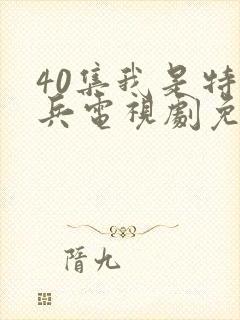 40集我是特
兵電視劇免
隋九